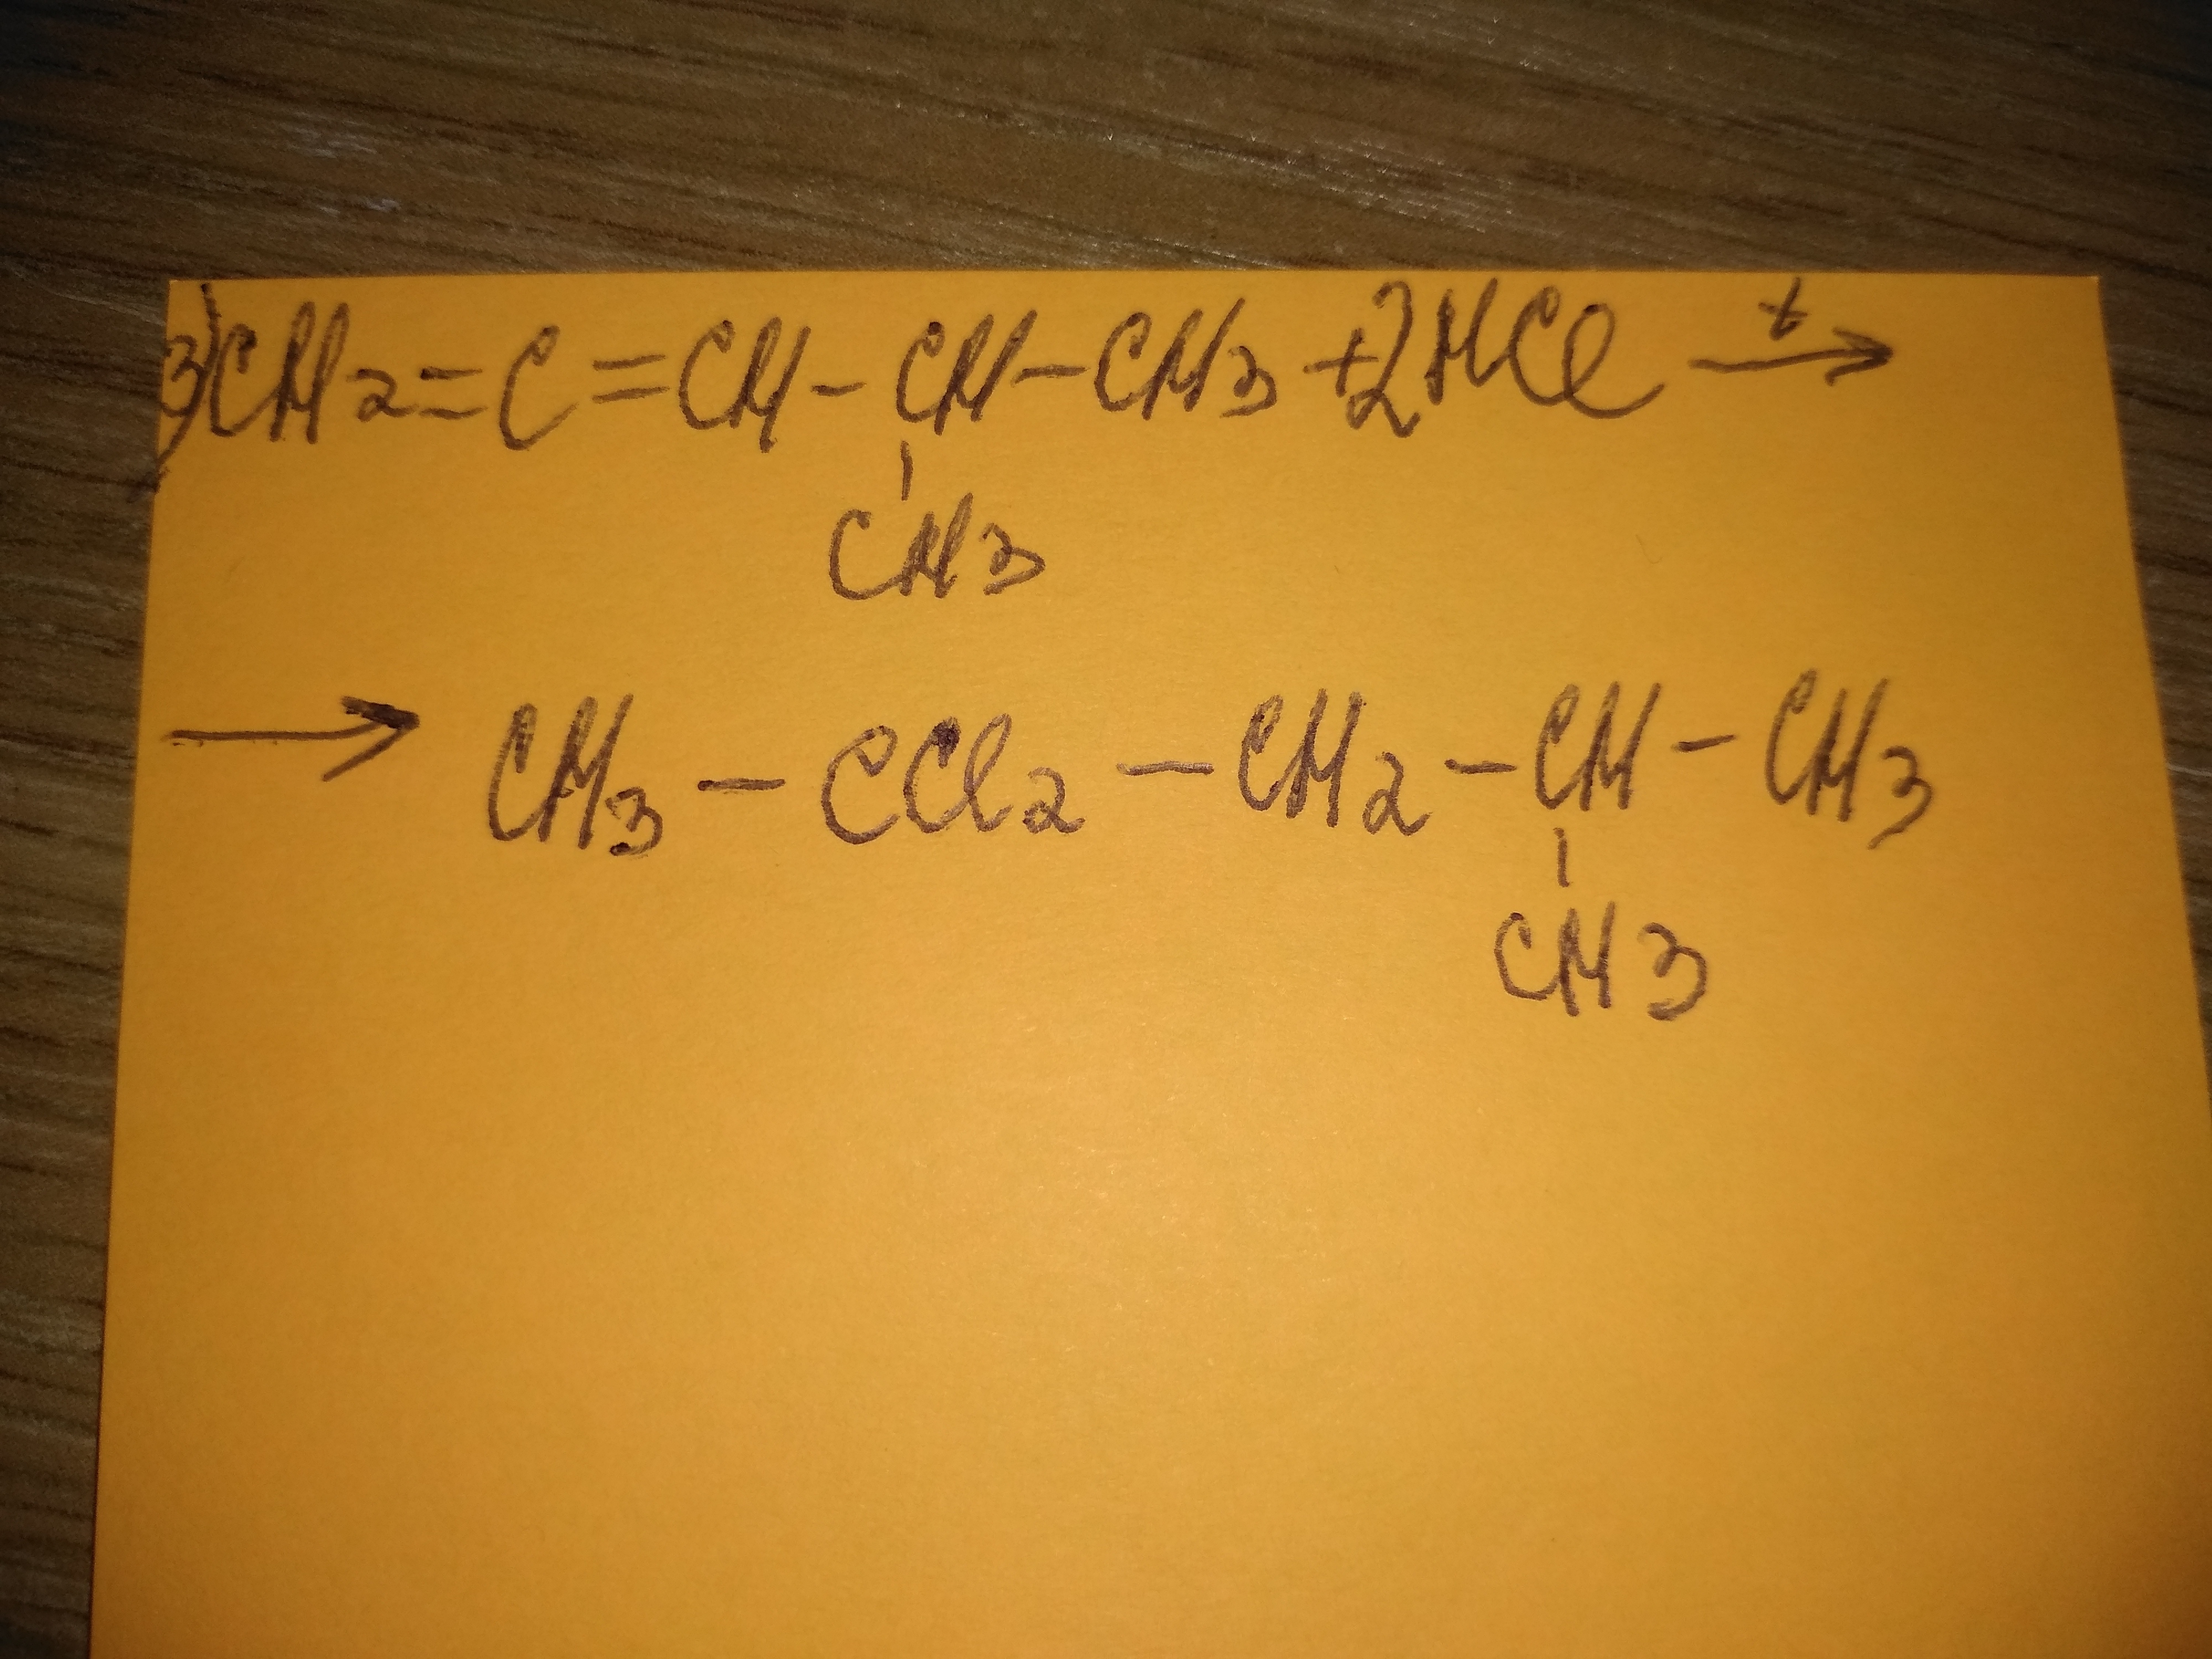 3) CH2=C=CH-CH-CH3+2HCl t→
|
CH3
→ CH3-CCl2-CH2-CH-CH3
|
CH3